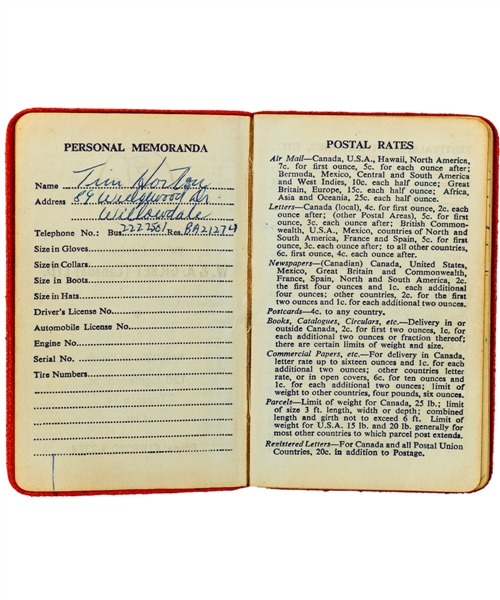 PERSONAL MEMORANDA
Name Tim Horton
Address 89 Wedgewood Dr.
Willowdale
Telephone No.: Bus. 2222581 Res. BA21274
Size in Gloves
Size in Collars
Size in Boots
Size in Hats
Driver's License No.
Automobile License No.
Engine No.
Serial No.
Tire Numbers
POSTAL RATES
Air Mail—Canada, U.S.A., Hawaii, North America,
7c. for first ounce, 5c. for each ounce after;
Bermuda, Mexico, Central and South America
and West Indies, 10c. each half ounce; Great
Britain, Europe, 15c. each half ounce; Africa,
Asia and Oceania, 25c. each half ounce.
Letters—Canada (local), 4c. for first ounce, 2c. each
ounce after; (other Postal Areas), 5c. for first
ounce, 3c. each ounce after; British Common-
wealth, U.S.A., Mexico, countries of North and
South America, France and Spain, 5c. for first
ounce, 3c. each ounce after; to all other countries,
6c. first ounce, 4c. each ounce after.
Newspapers—(Canadian) Canada, United States,
Mexico, Great Britain and Commonwealth,
France, Spain, North and South America, 2c.
the first four ounces and 1c. each additional
four ounces; other countries, 2c. for the first
two ounces and 1c. for each additional two ounces.
Postcards—4c. to any country.
Books, Catalogues, Circulars, etc.—Delivery in or
outside Canada, 2c. for first two ounces, 1c. for
each additional two ounces or fraction thereof;
there are certain limits of weight and size.
Commercial Papers, etc.—For delivery in Canada,
letter rate up to sixteen ounces and 1c. for each
additional two ounces; other countries letter
rate, or in open covers, 6c. for ten ounces and
1c. for each additional two ounces; limit of
weight to other countries, four pounds, six ounces.
Parcels—Limit of weight for Canada, 25 lb.; limit
of size 3 ft. length, width or depth; combined
length and girth not to exceed 6 ft. Limit of
weight for U.S.A. 15 lb. and 20 lb. generally for
most other countries to which parcel post extends.
Registered Letters—For Canada and all Postal Union
Countries, 20c. in addition to Postage.